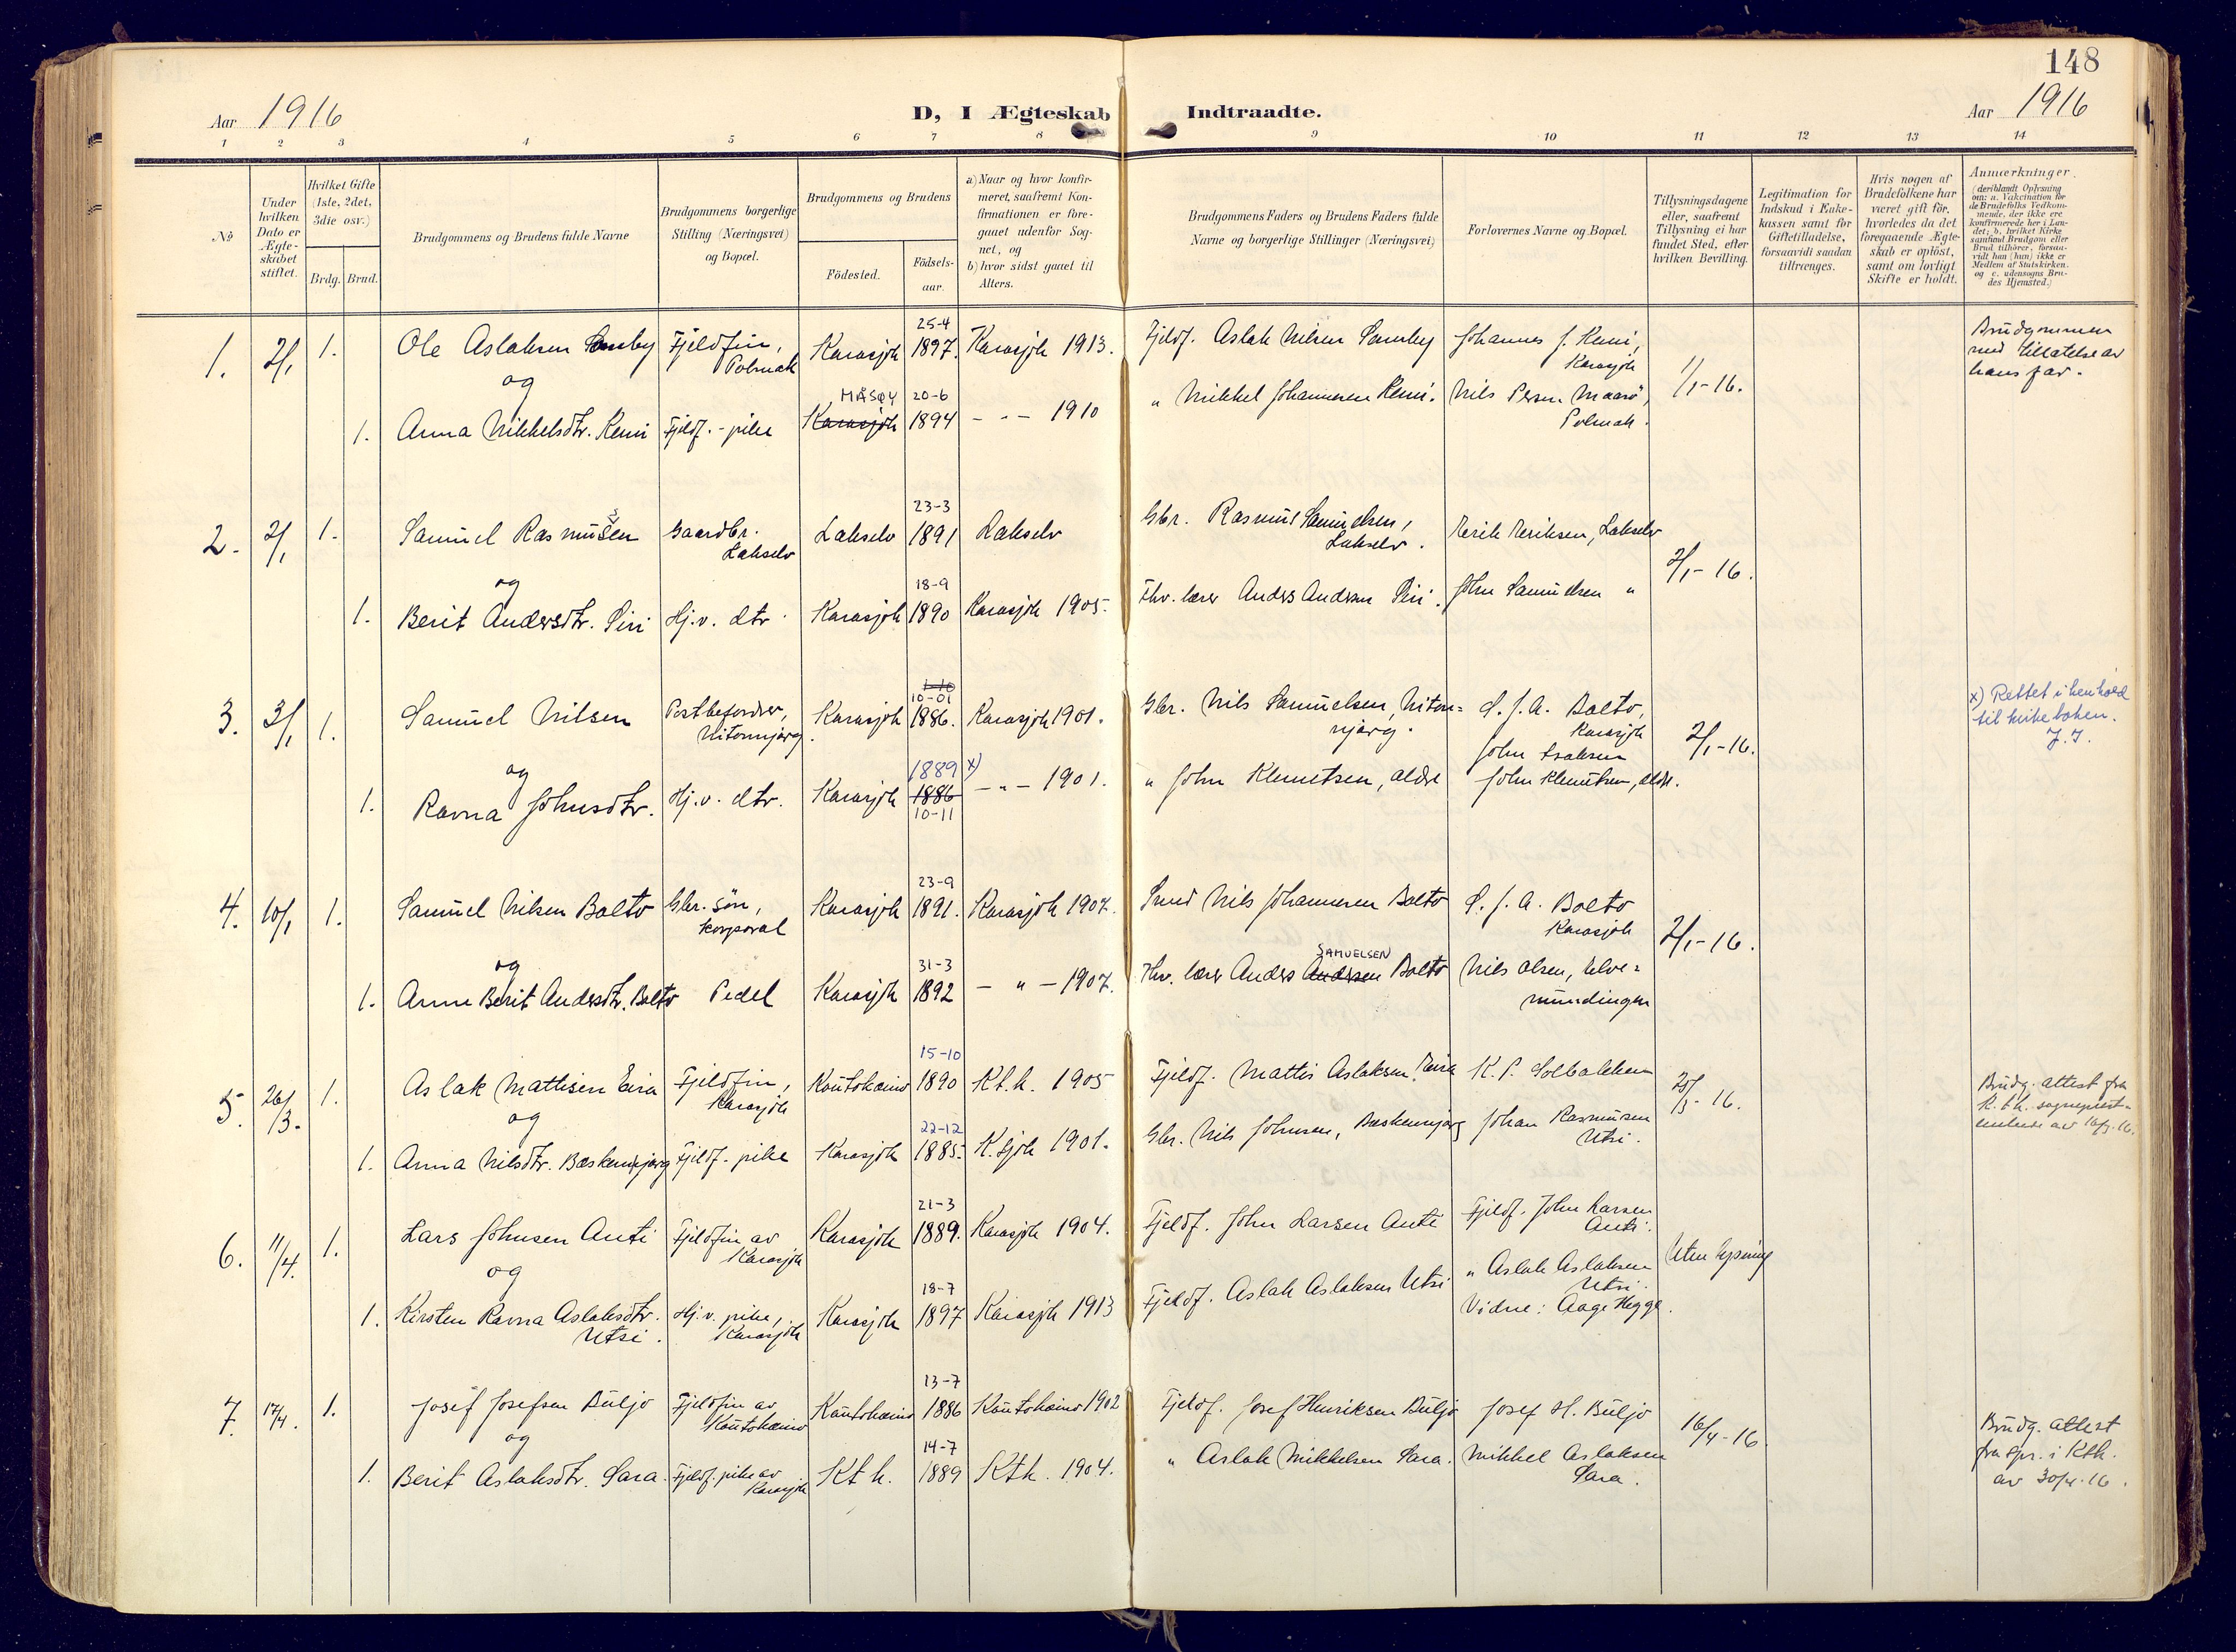 148
Aar 1916
D, I Ægteskab Indtraadte.
Aar 1916
1 2 3 4 5 6 7 8 9 10 11 12 13 14
No
Under hvilken Dato er Ægteskabet stiftet.
Hvilket Gifte (1ste, 2det, 3die osv.)
Brdg. Brud.
Brudgommens og Brudens fulde Navne
Brudgommens borgerlige Stilling (Næringsvei) og Bopæl.
Brudgommens og Brudens
Fødested.
Fødsels-aar.
a) Naar og hvor konfirmeret, saafremt Konfirmationen er foregaaet udenfor Sognet, og
b) hvor sidst gaaet til Alters.
Brudgommens Faders og Brudens Faders fulde Navne og borgerlige Stillinger (Næringsvei)
Forlovernes Navne og Bopæl.
Tillysningsdagene eller, saafremt Tillysning ei har fundet Sted, efter hvilken Bevilling.
Legitimation for Indskud i Enkekassen samt for Giftetilladelse, forsaavidt saadan tiltrænges.
Hvis nogen af Brudefolkene har været gift før, hvorledes da det foregaaende Ægteskab er opløst, samt om lovligt Skifte er holdt.
Anmærkninger.
(deriblandt Oplysning om: a. Vakcination for de Brudefolks Vedkommende, der ikke ere konfirmerede her i Landet; b. hvilket Kirkesamfund Brudgom eller Brud tilhører, forsaavidt han (hun) ikke er Medlem af Statskirken. og c. udensogns Brudes Hjemsted.)
1. 2/1 1. Ole Aslaksen Somby Fjeldfin, Polmak Karasjok 25-4 1897. Karasjok 1913. Fjeldf. Aslak Nilsen Somby Johannes J. Kemi, Karasjok 1/1-16. Brudgommen med tillatelse av hans far.
og
1. Anna Mikkelsdtr. Kemi Fjeldf.-pike MÅSØY Karasjok 20-6 1894 - " - 1910 " Mikkel Johannesen Kemi. Nils Persen Maasø, Polmak.
2. 2/1 1. Samuel Rasmussen Gaardbr. Lakselv Lakselv 23-3 1891 Lakselv Gbr. Rasmus Samuelsen, Lakselv. Eerik Eeriksen, Lakselv 2/1-16.
og
1. Berit Andersdtr. Siri Hj.v. dtr. Karasjok 18-9 1890 Karasjok 1905. Fhv. lærer Anders Andersen Siri. John Samuelsen "
3. 3/1 1. Samuel Nilsen Postbefordrer, Nitonnjarg. Karasjok 1-10 10-01 1886. Karasjok 1901. Gbr. Nils Samuelsen, Niton=njarg. S. J. A. Balto, Karasjok John Isaksen 2/1-16. x) Rettet i henhold til kirkeboken. J.J.
og
1. Ravna Johnsdtr. Hj.v. dtr. Karasjok 1889 x) 1886 10-11 - " - 1901. " John Klemetsen, aldre John Klemetsen, aldr.
4. 10/1 1. Samuel Nilsen Balto Gbr. søn, korporal Karasjok 23-9 1891. Karasjok 1907. Smed Nils Johannesen Balto S. J. A. Balto Karasjok 2/1-16.
og
1. Anne Berit Andersdtr. Balto Pedel Karasjok 31-3 1892 - " - 1907. Fhv. lærer Anders SAMUELSEN Andersen Balto Nils Olsen, Elve=mundingen
5. 26/3. 1. Aslak Mathisen Eira Fjeldfin, Karasjok Kautokeino 15-10 1890 Kt.k. 1905 Fjeldf. Mattis Aslaksen Eira K. P. Solbakken 25/3-16. Brudg. attest fra K.t.k. sogneprest-embede av 16/3.16.
og
1. Anna Nilsdtr. Bæskennjarg Fjeldf. pike Karasjok 22-12 1885. K.sjok 1901. Gbr. Nils Johnsen, Bæskennjarg Johan Rasmusen Utsi.
6. 11/4. 1. Lars Johnsen Anti Fjeldfin av Karasjok Karasjok 21-3 1889. Karasjok 1904. Fjeldf. John Larsen Anti Fjeldf. John Larsen Anti. Uten lysning
og
1. Kirsten Ravna Aslaksdtr. Utsi. Hj.v. pike, Karasjok Karasjok 18-7 1897 Karasjok 1913 Fjeldf. Aslak Aslaksen Utsi " Aslak Aslaksen Utsi. Vidne: Aage Hegge.
7. 17/4. 1. Josef Josefsen Buljo Fjeldfin av Kautokeino Kautokeino 13-7 1886 Kautokeino 1902 Fjeldf. Josef Henriksen Buljo Josef H. Buljo 16/4-16. Brudg. attest fra spr. i Ktk. av 30/4.16.
og
1. Berit Aslaksdtr. Sara. Fjeldf. pike av Karasjok Kt k. 14-7 1889 Ktk. 1904. " Aslak Mikkelsen Sara. Mikkel Aslaksen Sara.